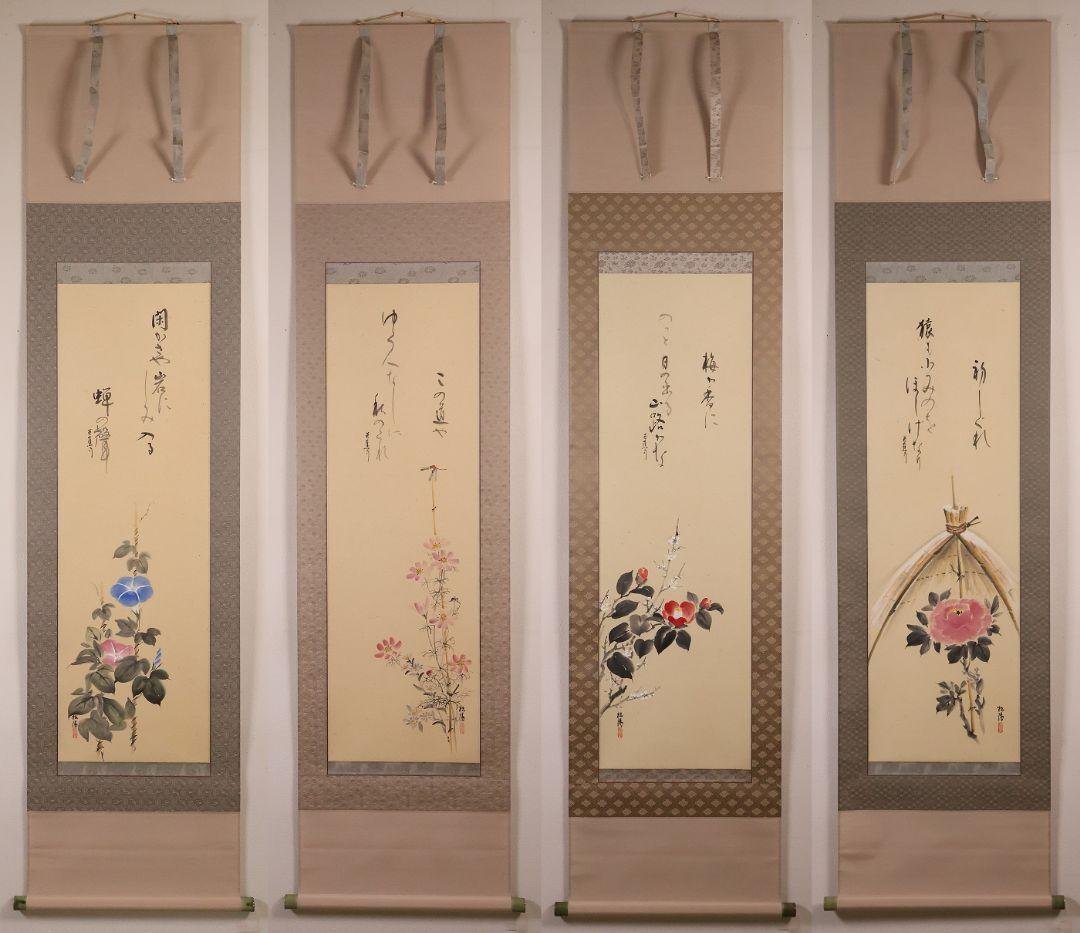 閑かさや岩に
しみ入る
蝉の聲
この道や
ゆく人なしに
秋のくれ
梅か香に
のつと日の出る
山路かな
初しくれ
猿も小みのを
ほしけなり